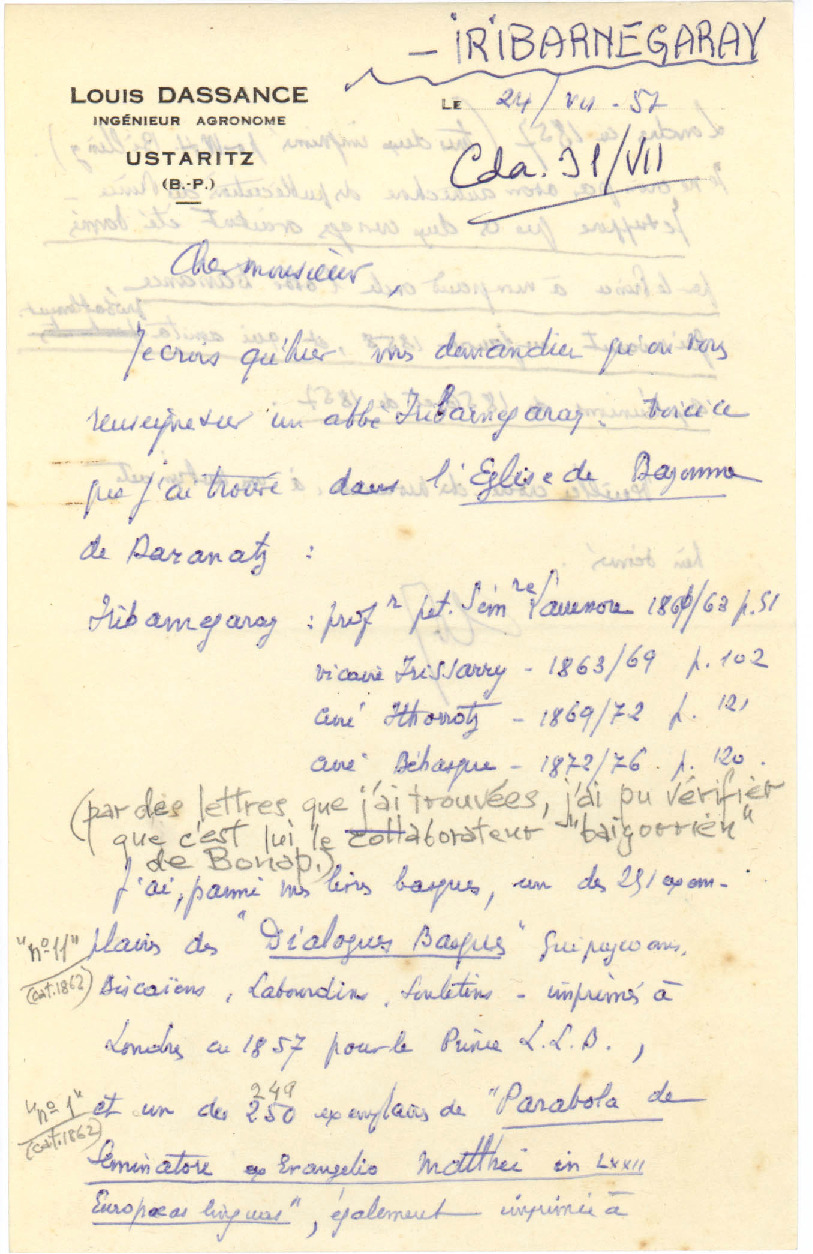 – IRIBARNEGARAY
LOUIS DASSANCE
INGÉNIEUR AGRONOME
USTARITZ
(B.-P.)
LE 24/VII-57
Cda. 31/VII
Cher monsieur,
Je crois qu'hier vous demandiez qu'on vous
renseigne sur un abbé Iribarnegaray. Voici ce
que j'ai trouvé dans l'Eglise de Bayonne
de Daranatz :
Iribarnegaray : profr pet. Semre Larressore 1860/63 p. 51
vicaire Irissarry – 1863/69 p. 102
curé Ithorrotz – 1869/72 p. 121
curé Béhasque – 1872/76 p. 120.
(par des lettres que j'ai trouvées, j'ai pu vérifier
que c'est lui le collaborateur "baigorrien"
de Bonap.)
J'ai, parmi mes livres basques, un des 251 exem-
"nº 11" plaires des "Dialogues Basques" Guipuzcoans,
(cat. 1862) Biscaïens, Labourdins, Souletins – imprimés à
Londres en 1857 pour le Prince L.L.B.,
249
"nº 1" et un des 250 exemplaires de "Parabola de
(cat. 1862) Seminatore ex Evangelio Matthei in LXXII
Europaeas linguas", également imprimée à